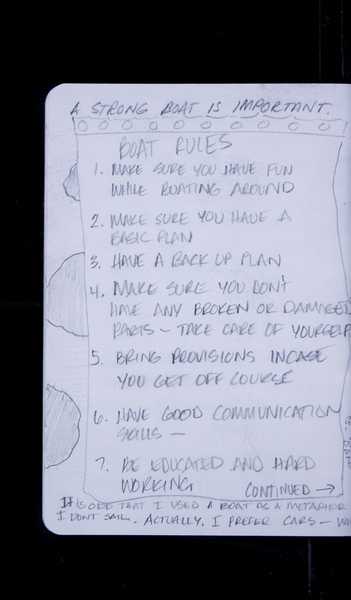 A STRONG BOAT IS IMPORTANT.
BOAT RULES
1. MAKE SURE YOU HAVE FUN
WHILE BOATING AROUND
2. MAKE SURE YOU HAVE A
BASIC PLAN
3. HAVE A BACK UP PLAN
4. MAKE SURE YOU DON'T
HAVE ANY BROKEN OR DAMAGED
PARTS — TAKE CARE OF YOURSELF
5. BRING PROVISIONS INCASE
YOU GET OFF COURSE
6. HAVE GOOD COMMUNICATION
SKILLS —
7. BE EDUCATED AND HARD
WORKING
CONTINUED →
IT IS ODD THAT I USED A BOAT AS A METAPHOR
I DONT SAIL. ACTUALLY, I PREFER CARS —